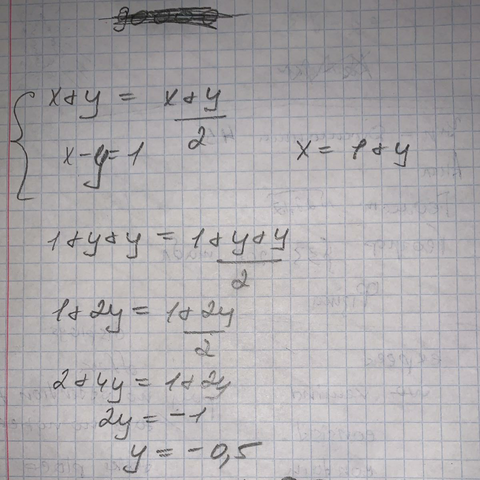 x+y = x+y/2
x-y=1 x = 1+y
1+y+y = 1+y+y/2
1+2y = 1+2y/2
2+4y = 1+2y
2y = -1
y = -0,5